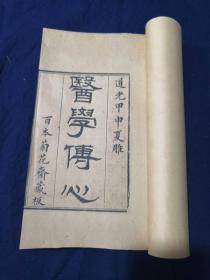 道光甲申夏雕
醫學傳心
百本菊花齋藏板